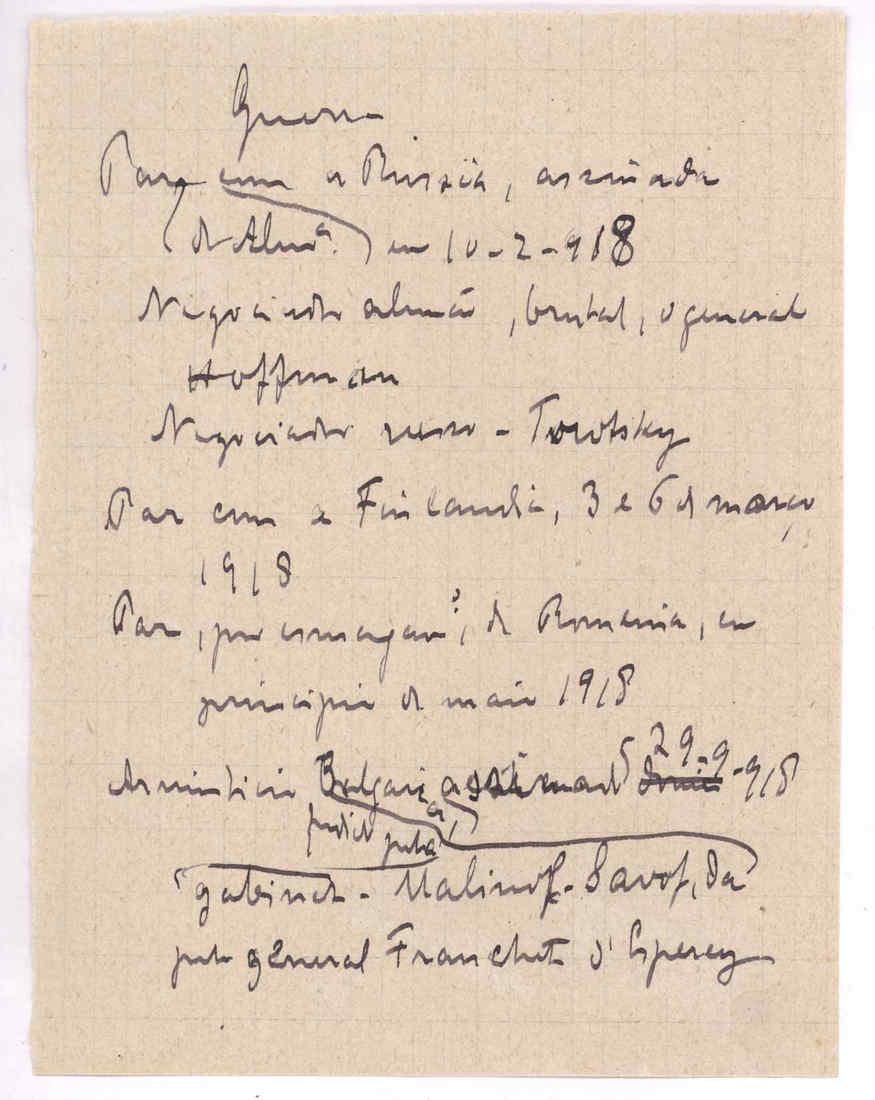 Guerra
Paz com a Russia, assinada
(da Alemª.) em 10-2-918
Negociador alemão, brutal, o general
Hoffman
Negociador russo - Trotsky
Paz com a Finlandia, 3 e 6 de março
1918
Paz, por esmagamº, da Romania, em
principio de maio 1918
Armisticio Bulgaria, assinado 29-9-918
pedido pelo
gabinete - Malinoff-Savof, da
pelo general Franchet d'Esperey